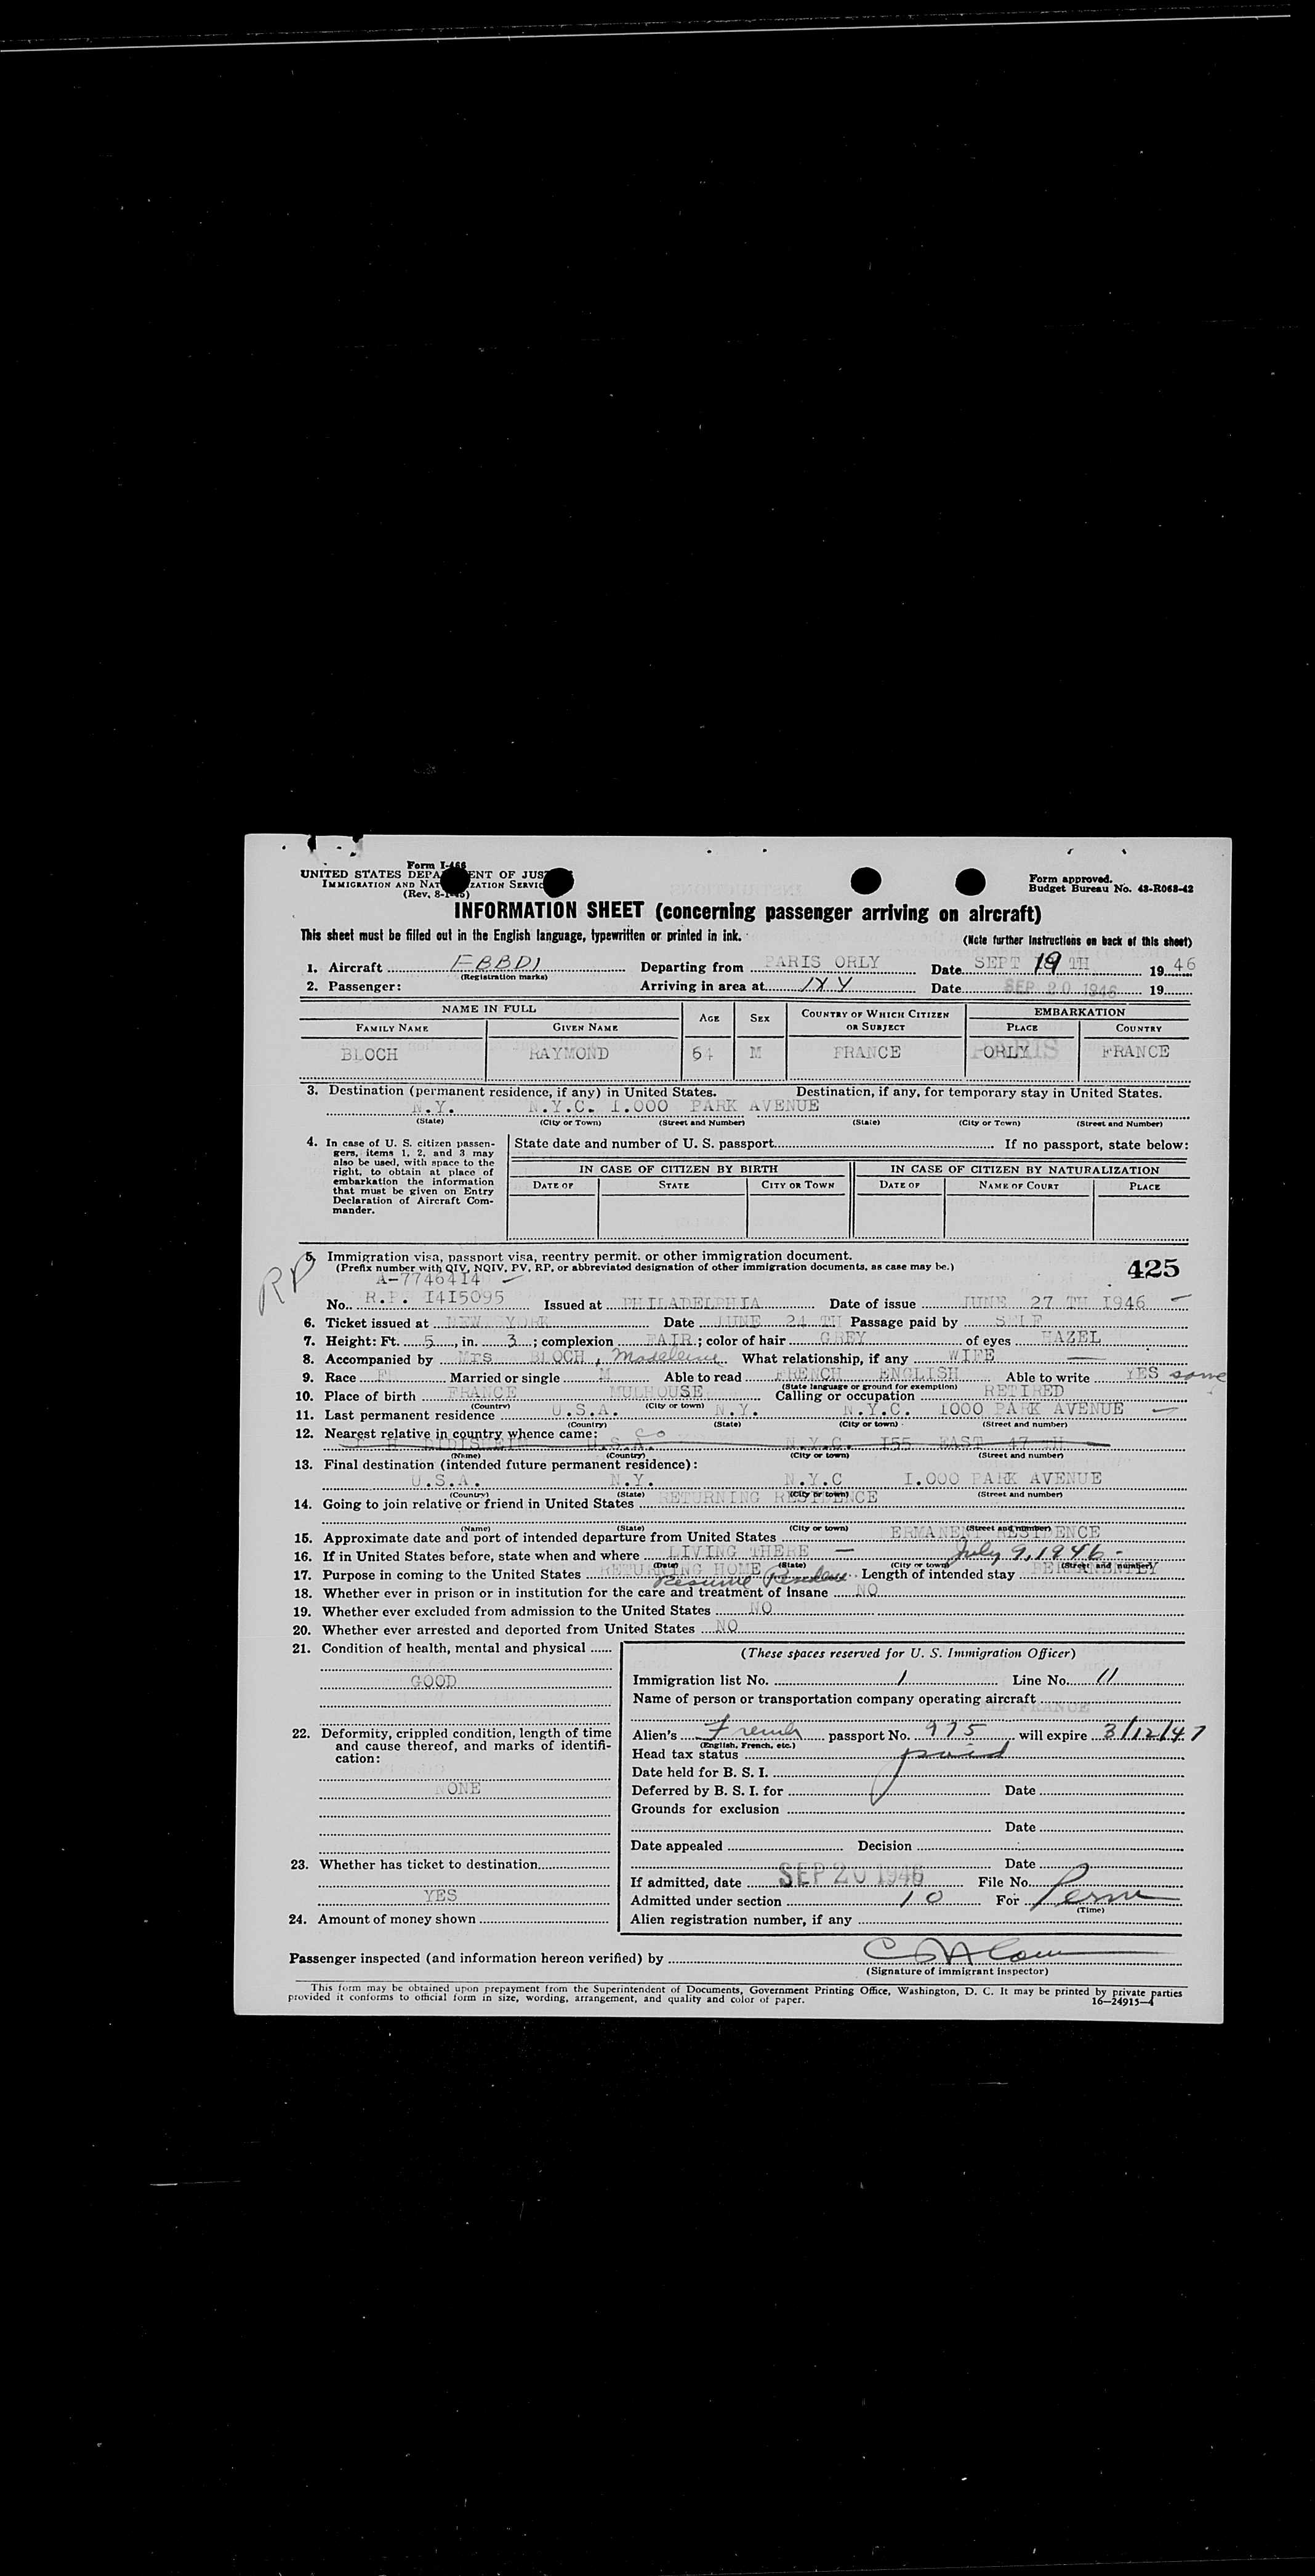 Form I-466
UNITED STATES DEPA ENT OF JUS
IMMIGRATION AND NAT ZATION SERVIC
(Rev. 8-1-45)
Form approved.
Budget Bureau No. 43-R068-42
INFORMATION SHEET (concerning passenger arriving on aircraft)
This sheet must be filled out in the English language, typewritten or printed in ink.
(Note further instructions on back of this sheet)
1. Aircraft FBBDI Departing from PARIS ORLY Date SEPT 19 TH 1946
(Registration marks)
2. Passenger: Arriving in area at Date SEP 20 1946 19
NAME IN FULL AGE SEX COUNTRY OF WHICH CITIZEN OR SUBJECT EMBARKATION
FAMILY NAME GIVEN NAME PLACE COUNTRY
BLOCH RAYMOND 64 M FRANCE ORLY PARIS FRANCE
3. Destination (permanent residence, if any) in United States. Destination, if any, for temporary stay in United States.
N.Y. N.Y.C. I.000 PARK AVENUE
(State) (City or Town) (Street and Number) (State) (City or Town) (Street and Number)
4. In case of U. S. citizen passengers, items 1, 2, and 3 may also be used, with space to the right, to obtain at place of embarkation the information that must be given on Entry Declaration of Aircraft Commander.
State date and number of U. S. passport If no passport, state below:
IN CASE OF CITIZEN BY BIRTH IN CASE OF CITIZEN BY NATURALIZATION
DATE OF STATE CITY OR TOWN DATE OF NAME OF COURT PLACE
RP
5. Immigration visa, passport visa, reentry permit, or other immigration document.
(Prefix number with QIV, NQIV, PV, RP, or abbreviated designation of other immigration documents, as case may be.)
425
A-7746414
No. R.P. I4I5095 Issued at PHILADELPHIA Date of issue JUNE 27 TH I946
6. Ticket issued at NEW YORK Date JUNE 24 TH Passage paid by SELF
7. Height: Ft. 5, in. 3; complexion FAIR; color of hair GREY of eyes HAZEL
8. Accompanied by Mrs BLOCH, Madeleine What relationship, if any WIFE
9. Race Married or single M Able to read FRENCH ENGLISH Able to write YES some
(State language or ground for exemption)
10. Place of birth FRANCE MULHOUSE Calling or occupation RETIRED
(Country) (City or town)
11. Last permanent residence U.S.A. N.Y. N.Y.C. 1000 PARK AVENUE
(Country) (State) (City or town) (Street and number)
12. Nearest relative in country whence came:
U.S.A. N.Y.C. I55 EAST 47 TH
(Name) (Country) (City or town) (Street and number)
13. Final destination (intended future permanent residence):
U.S.A. N.Y. N.Y.C I.000 PARK AVENUE
(Country) (State) (City or town) (Street and number)
14. Going to join relative or friend in United States RETURNING RESIDENCE
(Name) (State) (City or town) (Street and number)
15. Approximate date and port of intended departure from United States ERMANENT RESIDENCE
16. If in United States before, state when and where LIVING THERE — July 9, 1946 -
(Date) (State) (City or town) (Street and number)
17. Purpose in coming to the United States RETURNING HOME Length of intended stay PERMANENTLY
Resume Residence
18. Whether ever in prison or in institution for the care and treatment of insane NO
19. Whether ever excluded from admission to the United States NO
20. Whether ever arrested and deported from United States NO
21. Condition of health, mental and physical
GOOD
22. Deformity, crippled condition, length of time and cause thereof, and marks of identification:
NONE
23. Whether has ticket to destination
YES
24. Amount of money shown
(These spaces reserved for U. S. Immigration Officer)
Immigration list No. 1 Line No. 11
Name of person or transportation company operating aircraft
AIR FRANCE
Alien's French passport No. 975 will expire 3/12/47
(English, French, etc.)
Head tax status paid
Date held for B. S. I.
Deferred by B. S. I. for Date
Grounds for exclusion
Date
Date appealed Decision
Date
If admitted, date SEP 20 1946 File No.
Admitted under section 10 For Perm
(Time)
Alien registration number, if any
Passenger inspected (and information hereon verified) by
(Signature of immigrant inspector)
This form may be obtained upon prepayment from the Superintendent of Documents, Government Printing Office, Washington, D. C. It may be printed by private parties
provided it conforms to official form in size, wording, arrangement, and quality and color of paper.
16—24915-4